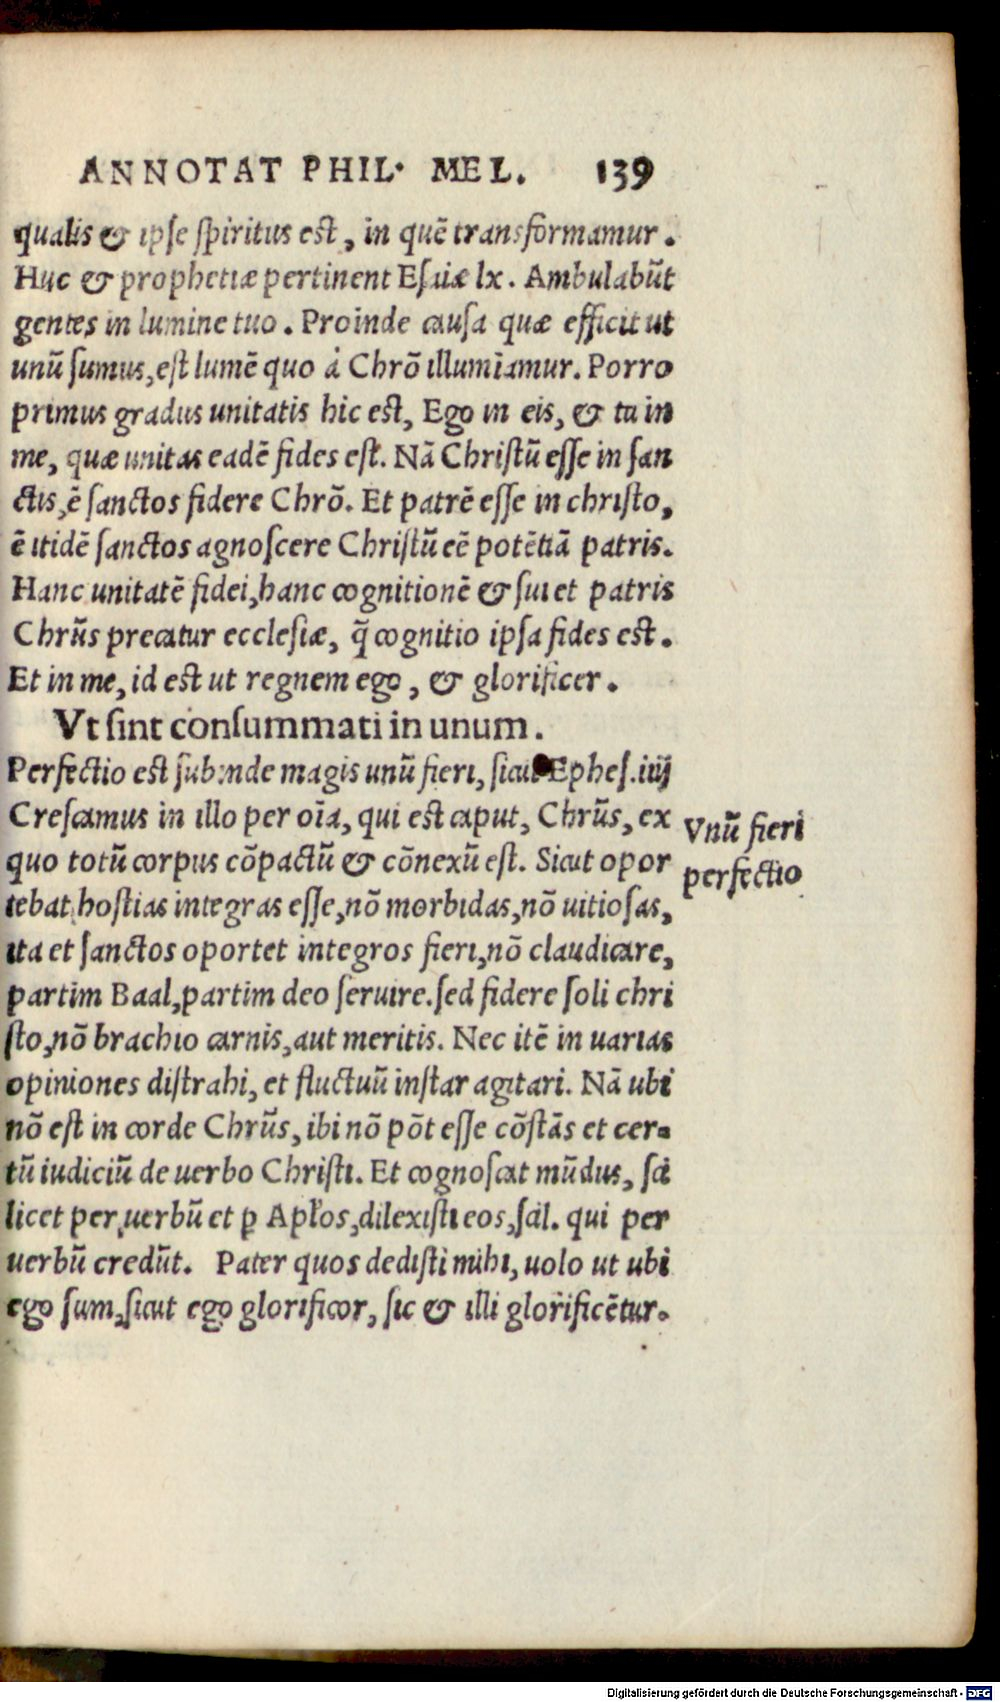 ANNOTAT PHIL. MEL. 139
qualis & ipſe ſpiritus est, in quē transformamur.
Huc & prophetiæ pertinent Eſaiæ lx. Ambulabūt
gentes in lumine tuo. Proinde cauſa quæ efficit ut
unū ſumus, eſt lumē quo à Chrō illumīamur. Porro
primus gradus unitatis hic est, Ego in eis, & tu in
me, quæ unitas eadē fides eſt. Nā Chriſtū eſſe in ſan
ctis, ē ſanctos fidere Chrō. Et patrē eſſe in chriſto,
ē itidē ſanctos agnoſcere Chriſtū eē potētiā patris.
Hanc unitatē fidei, hanc cognitionē & ſui et patris
Chrūs precatur eccleſiæ, q̄ cognitio ipſa fides est.
Et in me, id est ut regnem ego, & glorificer.
Vt ſint conſummati in unum.
Perfectio est ſubinde magis unū fieri, ſicut Epheſ. iiij
Creſcamus in illo per oīa, qui est caput, Chrūs, ex
quo totū corpus cōpactū & cōnexū eſt. Sicut opor
tebat hoſtias integras eſſe, nō morbidas, nō uitioſas,
ita et ſanctos oportet integros fieri, nō claudicare,
partim Baal, partim deo ſeruire. ſed fidere ſoli chri
ſto, nō brachio carnis, aut meritis. Nec itē in uarias
opiniones diſtrahi, et fluctuū inſtar agitari. Nā ubi
nō eſt in corde Chrūs, ibi nō pōt eſſe cōſtās et cer-
tū iudiciū de uerbo Chriſti. Et cognoſcat mūdus, ſci
licet per uerbū et ꝑ Apłos, dilexiſti eos, ſcil. qui per
uerbū credūt. Pater quos dediſti mihi, uolo ut ubi
ego ſum, ſicut ego glorificor, ſic & illi glorificētur.
Vnū fieri
perfectio
Digitalisierung gefördert durch die Deutsche Forschungsgemeinschaft - DFG